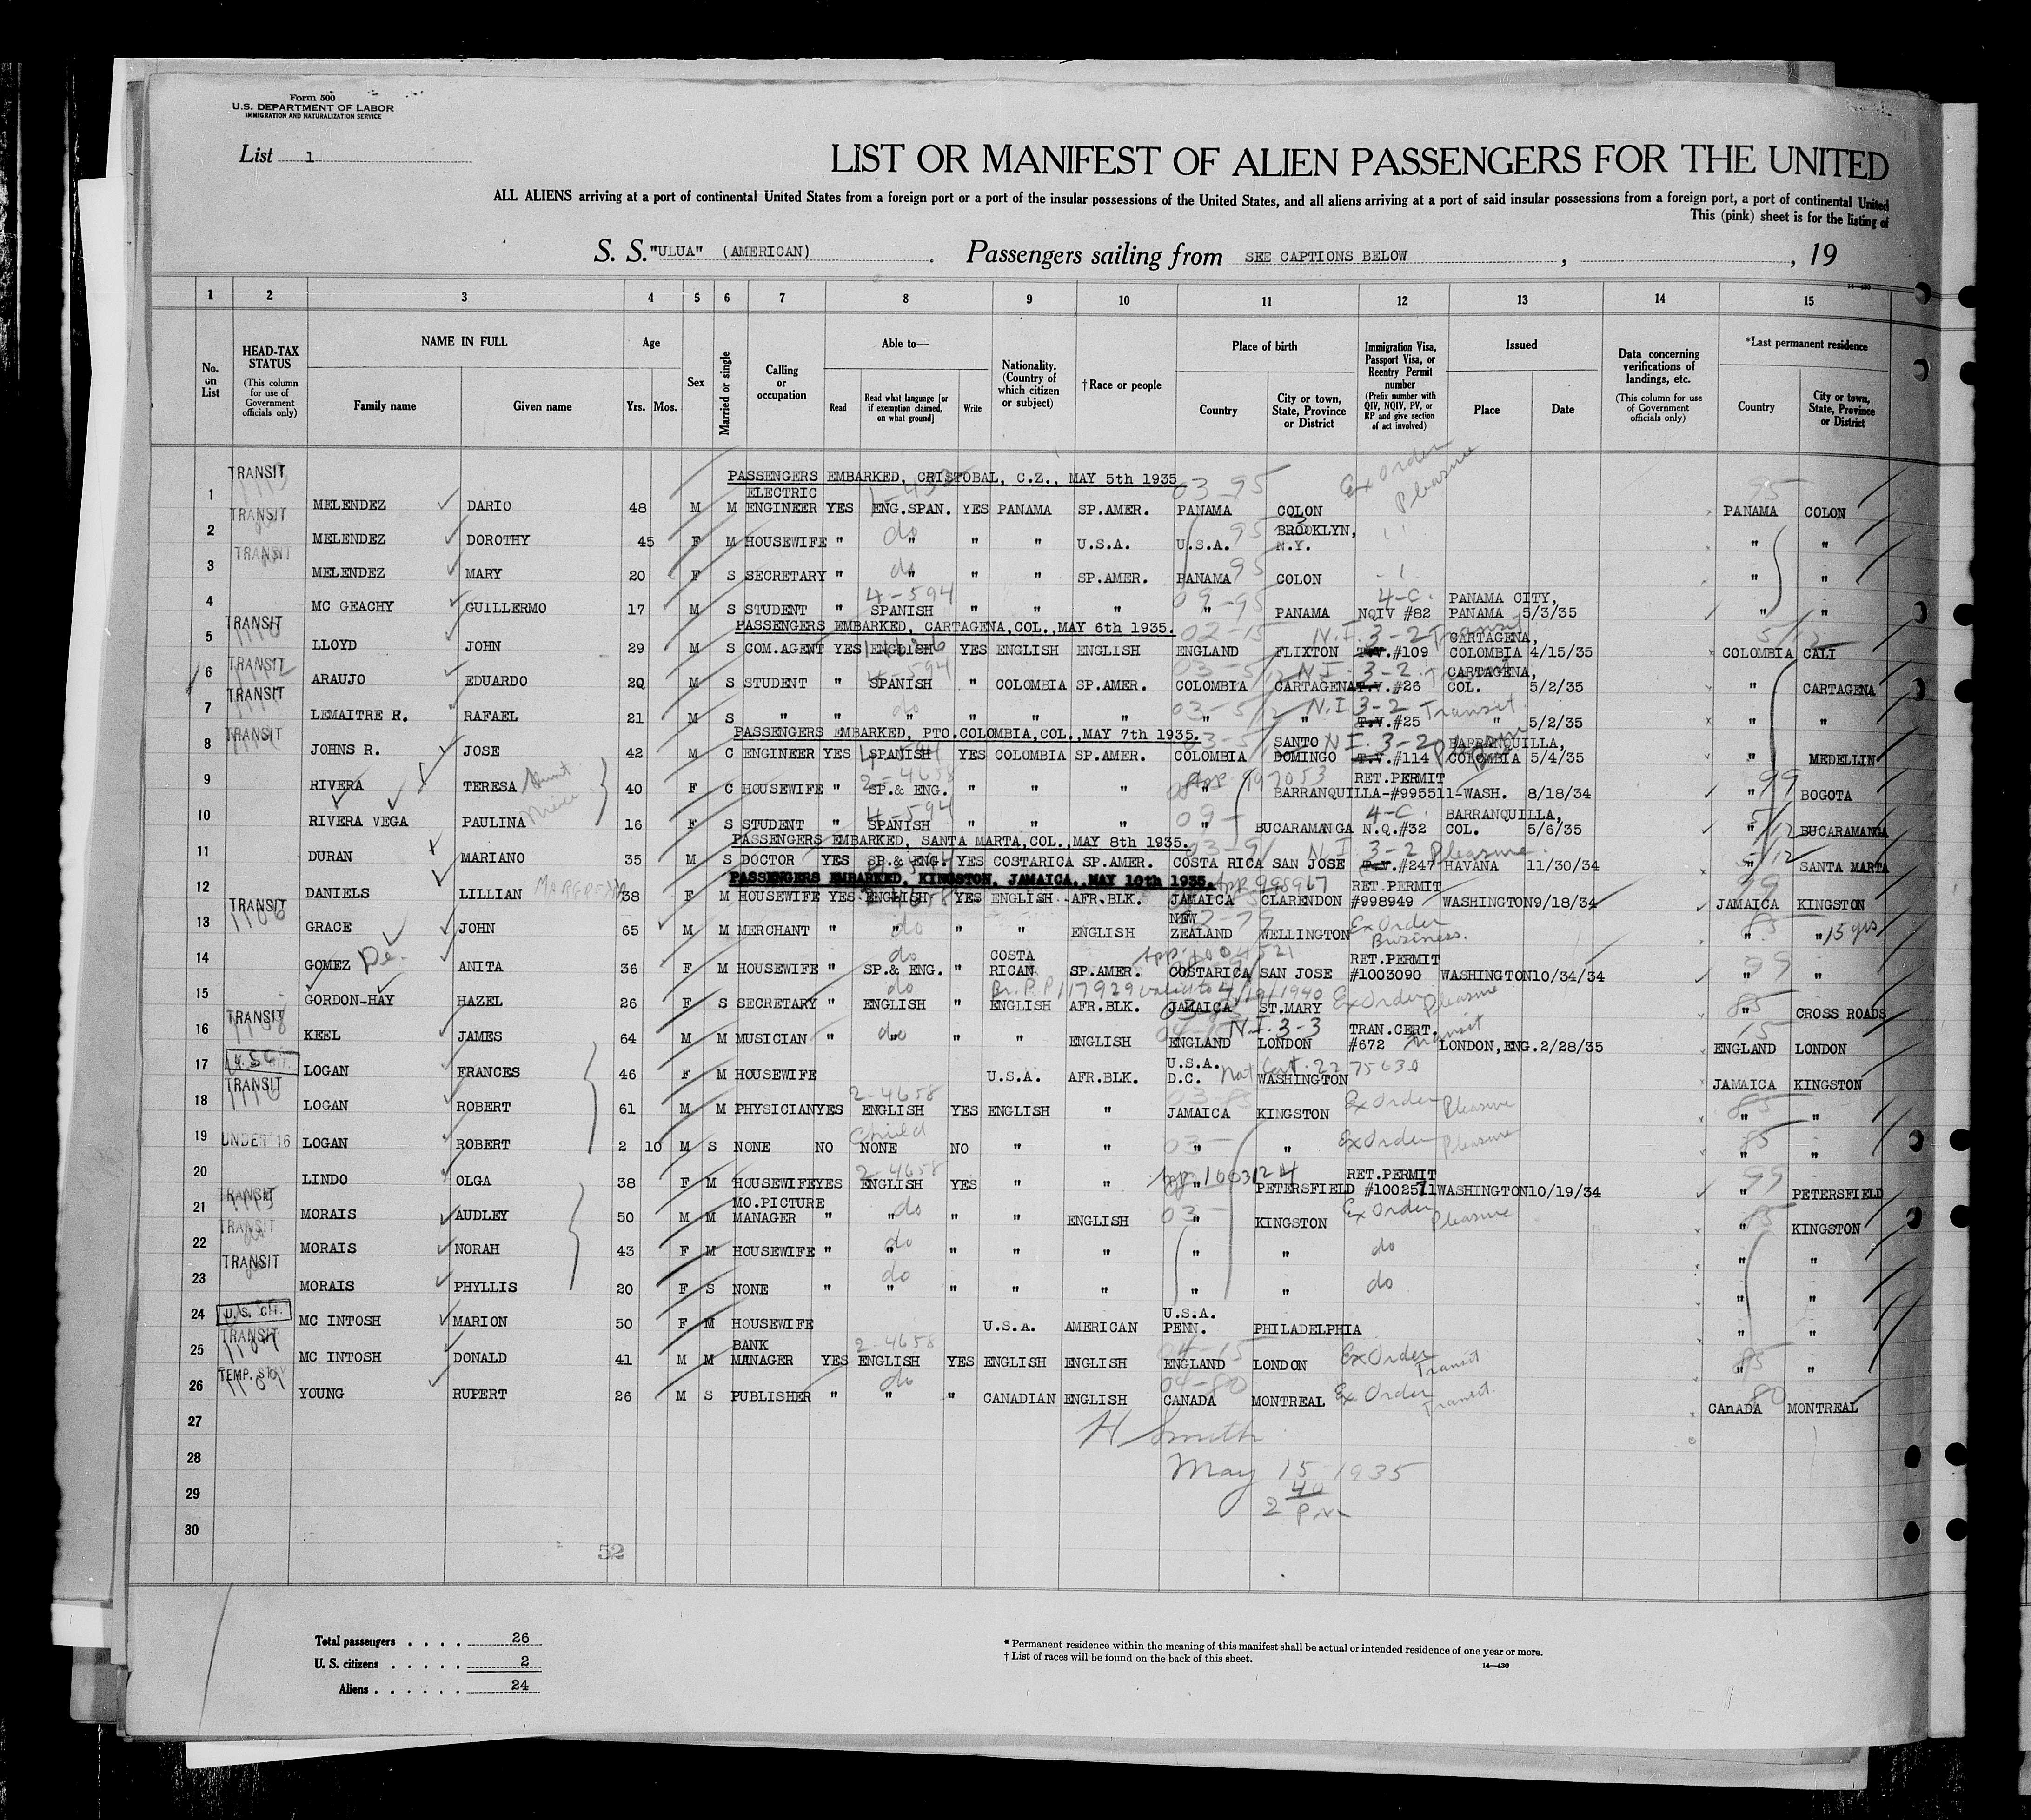 Form 500
U.S. DEPARTMENT OF LABOR
IMMIGRATION AND NATURALIZATION SERVICE
List 1
LIST OR MANIFEST OF ALIEN PASSENGERS FOR THE UNITED
ALL ALIENS arriving at a port of continental United States from a foreign port or a port of the insular possessions of the United States, and all aliens arriving at a port of said insular possessions from a foreign port, a port of continental United
This (pink) sheet is for the listing of
S. S. "ULUA" (AMERICAN) . Passengers sailing from SEE CAPTIONS BELOW , , 19
1 2 3 4 5 6 7 8 9 10 11 12 13 14 15
No. on List
HEAD-TAX STATUS (This column for use of Government officials only)
NAME IN FULL Family name Given name
Age Yrs. Mos.
Sex
Married or single
Calling or occupation
Able to— Read Read what language [or if exemption claimed, on what ground] Write
Nationality. (Country of which citizen or subject)
†Race or people
Place of birth Country City or town, State, Province or District
Immigration Visa, Passport Visa, or Reentry Permit number (Prefix number with QIV, NQIV, PV, or RP and give section of act involved)
Issued Place Date
Data concerning verifications of landings, etc. (This column for use of Government officials only)
*Last permanent residence Country City or town, State, Province or District
PASSENGERS EMBARKED, CRISTOBAL, C.Z., MAY 5th 1935
1 TRANSIT MELENDEZ DARIO 48 M M ELECTRIC ENGINEER YES ENG.SPAN. YES PANAMA SP.AMER. PANAMA COLON Ex Order Pleasure PANAMA COLON
2 TRANSIT MELENDEZ DOROTHY 45 F M HOUSEWIFE " " " " U.S.A. U.S.A. BROOKLYN, N.Y. " "
3 TRANSIT MELENDEZ MARY 20 F S SECRETARY " " " " SP.AMER. PANAMA COLON " "
4 MC GEACHY GUILLERMO 17 M S STUDENT " SPANISH " " " " PANAMA 4-C. NQIV #82 PANAMA CITY, PANAMA 5/3/35 " "
PASSENGERS EMBARKED, CARTAGENA,COL.,MAY 6th 1935.
5 TRANSIT LLOYD JOHN 29 M S COM.AGENT YES ENGLISH YES ENGLISH ENGLISH ENGLAND FLIXTON N.I. 3-2 Transit T.V.#109 CARTAGENA, COLOMBIA 4/15/35 COLOMBIA CALI
6 TRANSIT ARAUJO EDUARDO 20 M S STUDENT " SPANISH " COLOMBIA SP.AMER. COLOMBIA CARTAGENA N.I. 3-2 T.V.#26 CARTAGENA, COL. 5/2/35 " CARTAGENA
7 TRANSIT LEMAITRE R. RAFAEL 21 M S " " " " " " " " N.I. 3-2 Transit T.V.#25 " 5/2/35 " "
PASSENGERS EMBARKED, PTO.COLOMBIA,COL.,MAY 7th 1935.
8 TRANSIT JOHNS R. JOSE 42 M C ENGINEER YES SPANISH YES COLOMBIA SP.AMER. COLOMBIA SANTO DOMINGO N.I. 3-2 T.V.#114 BARRANQUILLA, COLOMBIA 5/4/35 " MEDELLIN
9 RIVERA TERESA Aunt 40 F C HOUSEWIFE " SP.& ENG. " " " " BARRANQUILLA-#995511-WASH. RET.PERMIT 8/18/34 " BOGOTA
10 RIVERA VEGA PAULINA Niece 16 F S STUDENT " SPANISH " " " " BUCARAMANGA 4-C. N.Q.#32 BARRANQUILLA, COL. 5/6/35 " BUCARAMANGA
PASSENGERS EMBARKED, SANTA MARTA,COL.,MAY 8th 1935.
11 DURAN MARIANO 35 M S DOCTOR YES SP.& ENG. YES COSTARICA SP.AMER. COSTA RICA SAN JOSE N.I. 3-2 Pleasure. T.V.#247 HAVANA 11/30/34 " SANTA MARTA
PASSENGERS EMBARKED, KINGSTON, JAMAICA,,MAY 10th 1935.
12 DANIELS LILLIAN 38 F M HOUSEWIFE YES ENGLISH YES ENGLISH AFR.BLK. JAMAICA CLARENDON RET.PERMIT #998949 WASHINGTON 9/18/34 JAMAICA KINGSTON
13 TRANSIT GRACE JOHN 65 M M MERCHANT " " " " ENGLISH NEW ZEALAND WELLINGTON Ex Order Business. " " 15 yrs
14 GOMEZ De. ANITA 36 F M HOUSEWIFE " SP.& ENG. " COSTA RICAN SP.AMER. COSTARICA SAN JOSE RET.PERMIT #1003090 WASHINGTON 10/34/34 " "
15 GORDON-HAY HAZEL 26 F S SECRETARY " ENGLISH " ENGLISH AFR.BLK. JAMAICA ST.MARY Ex Order Pleasure " CROSS ROADS
16 TRANSIT KEEL JAMES 64 M M MUSICIAN " " " " ENGLISH ENGLAND LONDON N.I. 3-3 TRAN.CERT. #672 Transit LONDON,ENG. 2/28/35 ENGLAND LONDON
17 LOGAN FRANCES 46 F M HOUSEWIFE U.S.A. AFR.BLK. U.S.A. D.C. WASHINGTON Nat Cert. 2275630 JAMAICA KINGSTON
18 TRANSIT LOGAN ROBERT 61 M M PHYSICIAN YES ENGLISH YES ENGLISH " JAMAICA KINGSTON Ex Order Pleasure " "
19 UNDER 16 LOGAN ROBERT 2 10 M S NONE NO Child NONE NO " " " " Ex Order Pleasure " "
20 LINDO OLGA 38 F M HOUSEWIFE YES ENGLISH YES " " " PETERSFIELD RET.PERMIT #1002571 WASHINGTON 10/19/34 " PETERSFIELD
21 TRANSIT MORAIS AUDLEY 50 M M MO.PICTURE MANAGER " " " " ENGLISH " KINGSTON Ex Order Pleasure " KINGSTON
22 TRANSIT MORAIS NORAH 43 F M HOUSEWIFE " " " " " " " do " "
23 TRANSIT MORAIS PHYLLIS 20 F S NONE " " " " " " " do " "
24 U.S. CIT. MC INTOSH MARION 50 F M HOUSEWIFE U.S.A. AMERICAN U.S.A. PENN. PHILADELPHIA " "
25 TRANSIT MC INTOSH DONALD 41 M M BANK MANAGER YES ENGLISH YES ENGLISH ENGLISH ENGLAND LONDON Ex Order Transit " "
26 TEMP. STAY YOUNG RUPERT 26 M S PUBLISHER " " " CANADIAN ENGLISH CANADA MONTREAL Ex Order Transit. CAnADA MONTREAL
27
H Smith
28
May 15 1935
29
2 40 P.M
30
52
Total passengers . . . . 26
U. S. citizens . . . . . 2
Aliens . . . . . . 24
* Permanent residence within the meaning of this manifest shall be actual or intended residence of one year or more.
† List of races will be found on the back of this sheet.
14—430